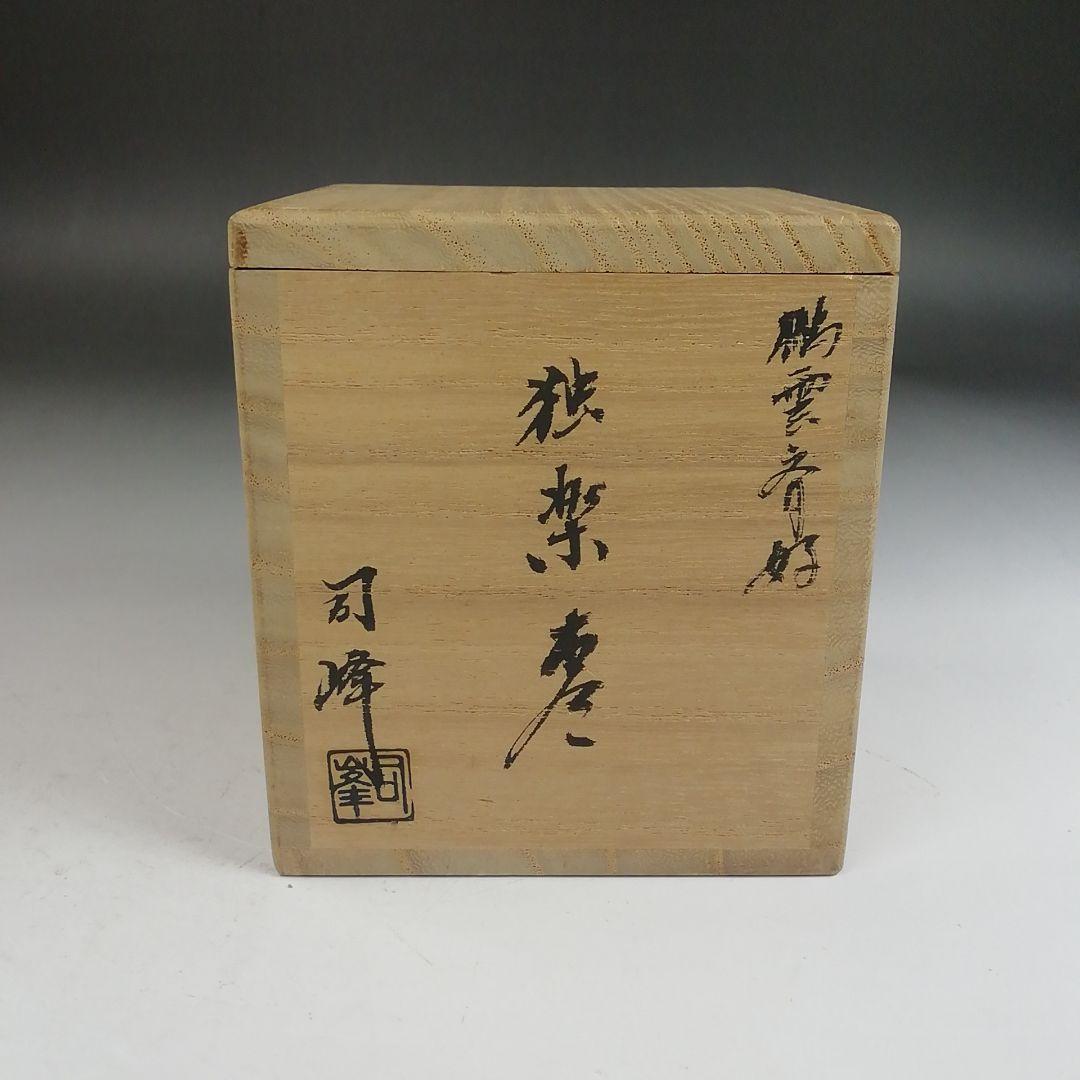 鵬雲斎好
独楽棗
司峰
司峯